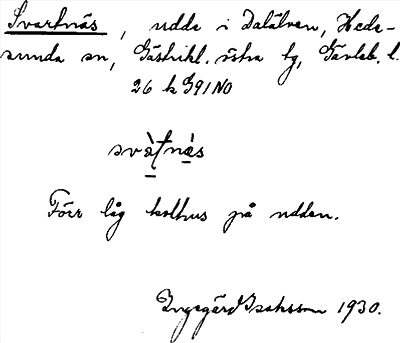 Svartnäs, udde i Dalälven, Hede-
sunda sn, Gästrikl. östra tg, Gävleb. l.
26 k G91NO
svàṭnä̀s
Förr låg kolhus på udden.
Ingegärd Isaksson 1930.